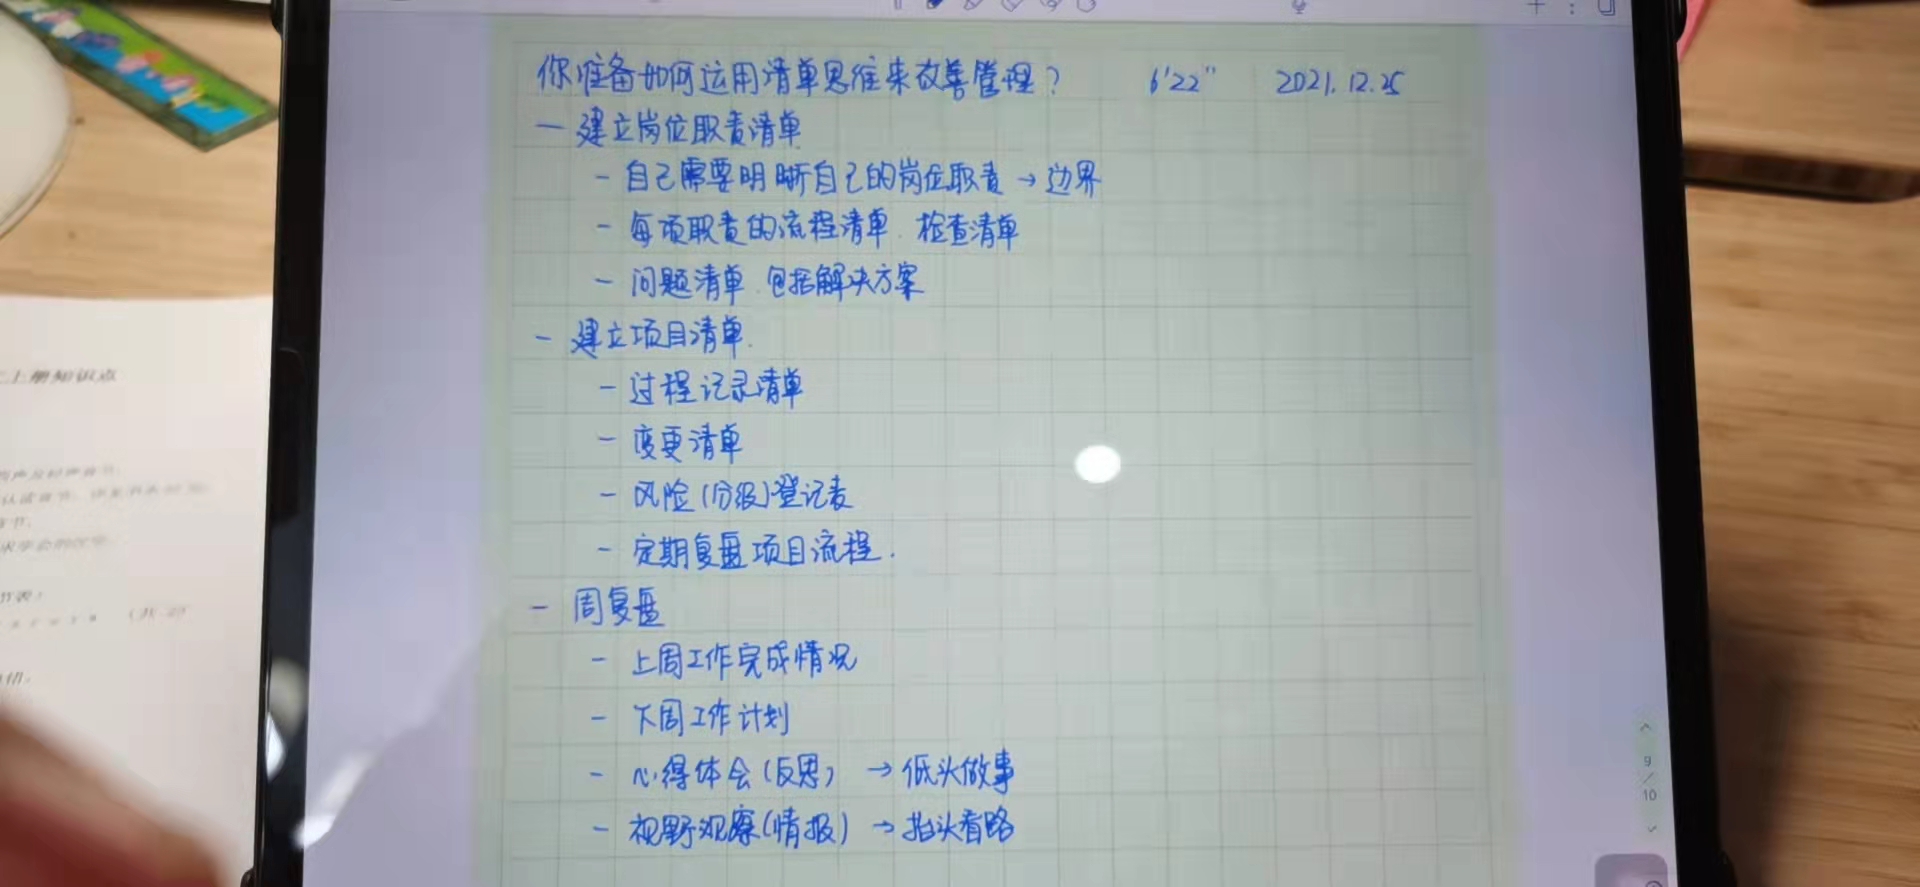 你准备如何运用清单思维来改善管理? 6'22" 2021.12.25
- 建立岗位职责清单
- 自己需要明晰自己的岗位职责 → 边界
- 每项职责的流程清单、检查清单
- 问题清单、包括解决方案
- 建立项目清单.
- 过程记录清单
- 变更清单
- 风险(分级)登记表
- 定期复盘项目流程.
- 周复盘
- 上周工作完成情况
- 下周工作计划
- 心得体会(反思) → 低头做事
- 视野观察(情报) → 抬头看路
9/10
上册知识点